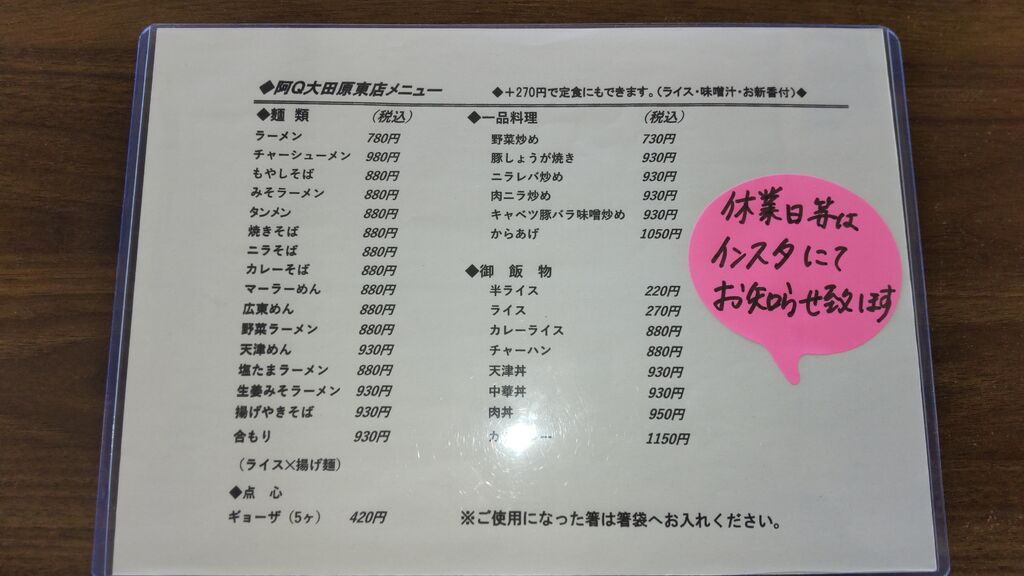 ◆阿Q大田原東店メニュー
◆+270円で定食にもできます。(ライス・味噌汁・お新香付)◆
◆麺 類 (税込)
ラーメン 780円
チャーシューメン 980円
もやしそば 880円
みそラーメン 880円
タンメン 880円
焼きそば 880円
ニラそば 880円
カレーそば 880円
マーラーめん 880円
広東めん 880円
野菜ラーメン 880円
天津めん 930円
塩たまラーメン 880円
生姜みそラーメン 930円
揚げやきそば 930円
合もり 930円
(ライス×揚げ麺)
◆点 心
ギョーザ(5ヶ) 420円
◆一品料理 (税込)
野菜炒め 730円
豚しょうが焼き 930円
ニラレバ炒め 930円
肉ニラ炒め 930円
キャベツ豚バラ味噌炒め 930円
からあげ 1050円
◆御 飯 物
半ライス 220円
ライス 270円
カレーライス 880円
チャーハン 880円
天津丼 930円
中華丼 930円
肉丼 950円
1150円
※ご使用になった箸は箸袋へお入れください。
休業日等は
インスタにて
お知らせ致します